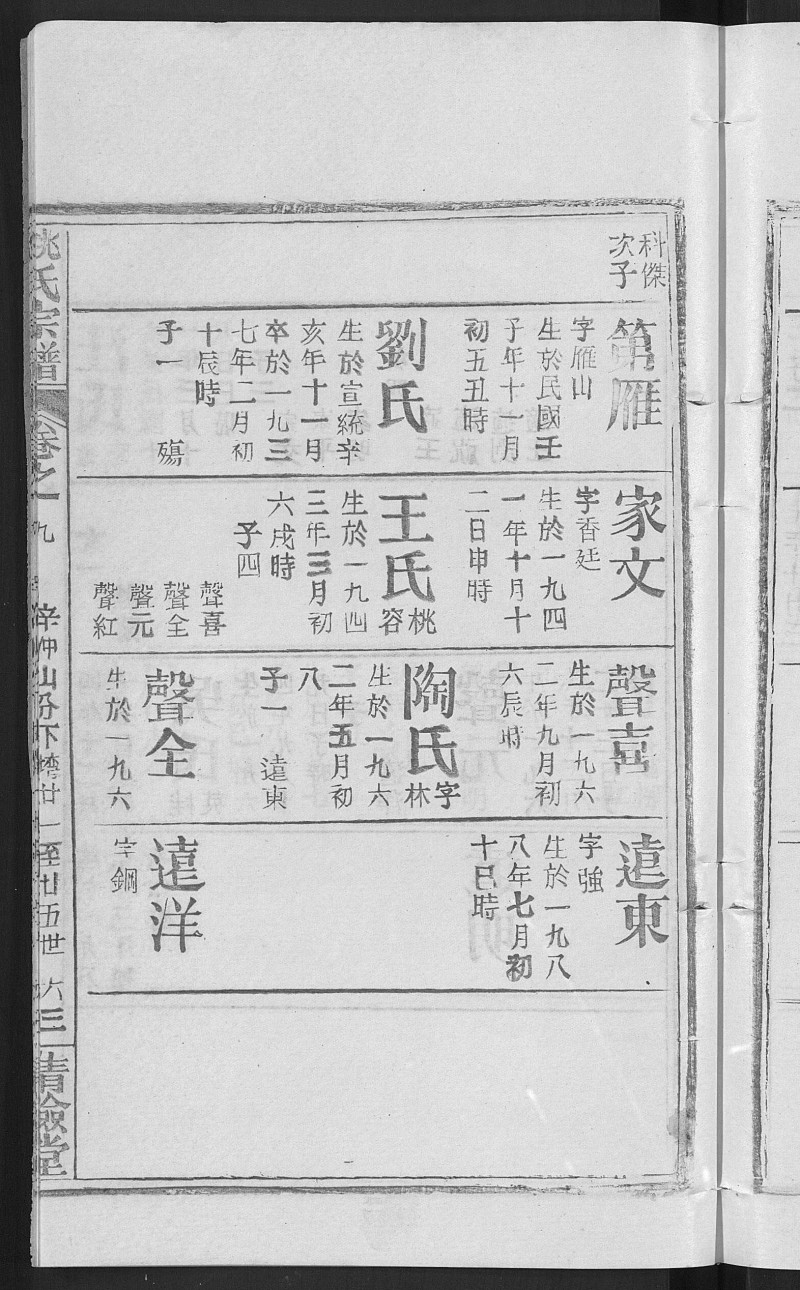 科傑
次子
第雁
字雁山
生於民國壬
子年十一月
初五丑時
劉氏
生於宣統辛
亥年十一月
卒於一九三
七年二月初
十辰時
子一　殤
家文
字香廷
生於一九四
一年十月十
二日申時
王氏
桃容
生於一九四
三年三月初
六戌時
子四
聲喜
聲全
聲元
聲紅
聲喜
生於一九六
二年九月初
六辰時
陶氏
字林
生於一九六
二年五月初
八
子一　遠東
聲全
生於一九六
遠東
字強
生於一九八
八年七月初
十巳時
遠洋
字鋼
姚氏宗譜
卷之一九
山分下灣廿一至廿五世
六三
清儉堂